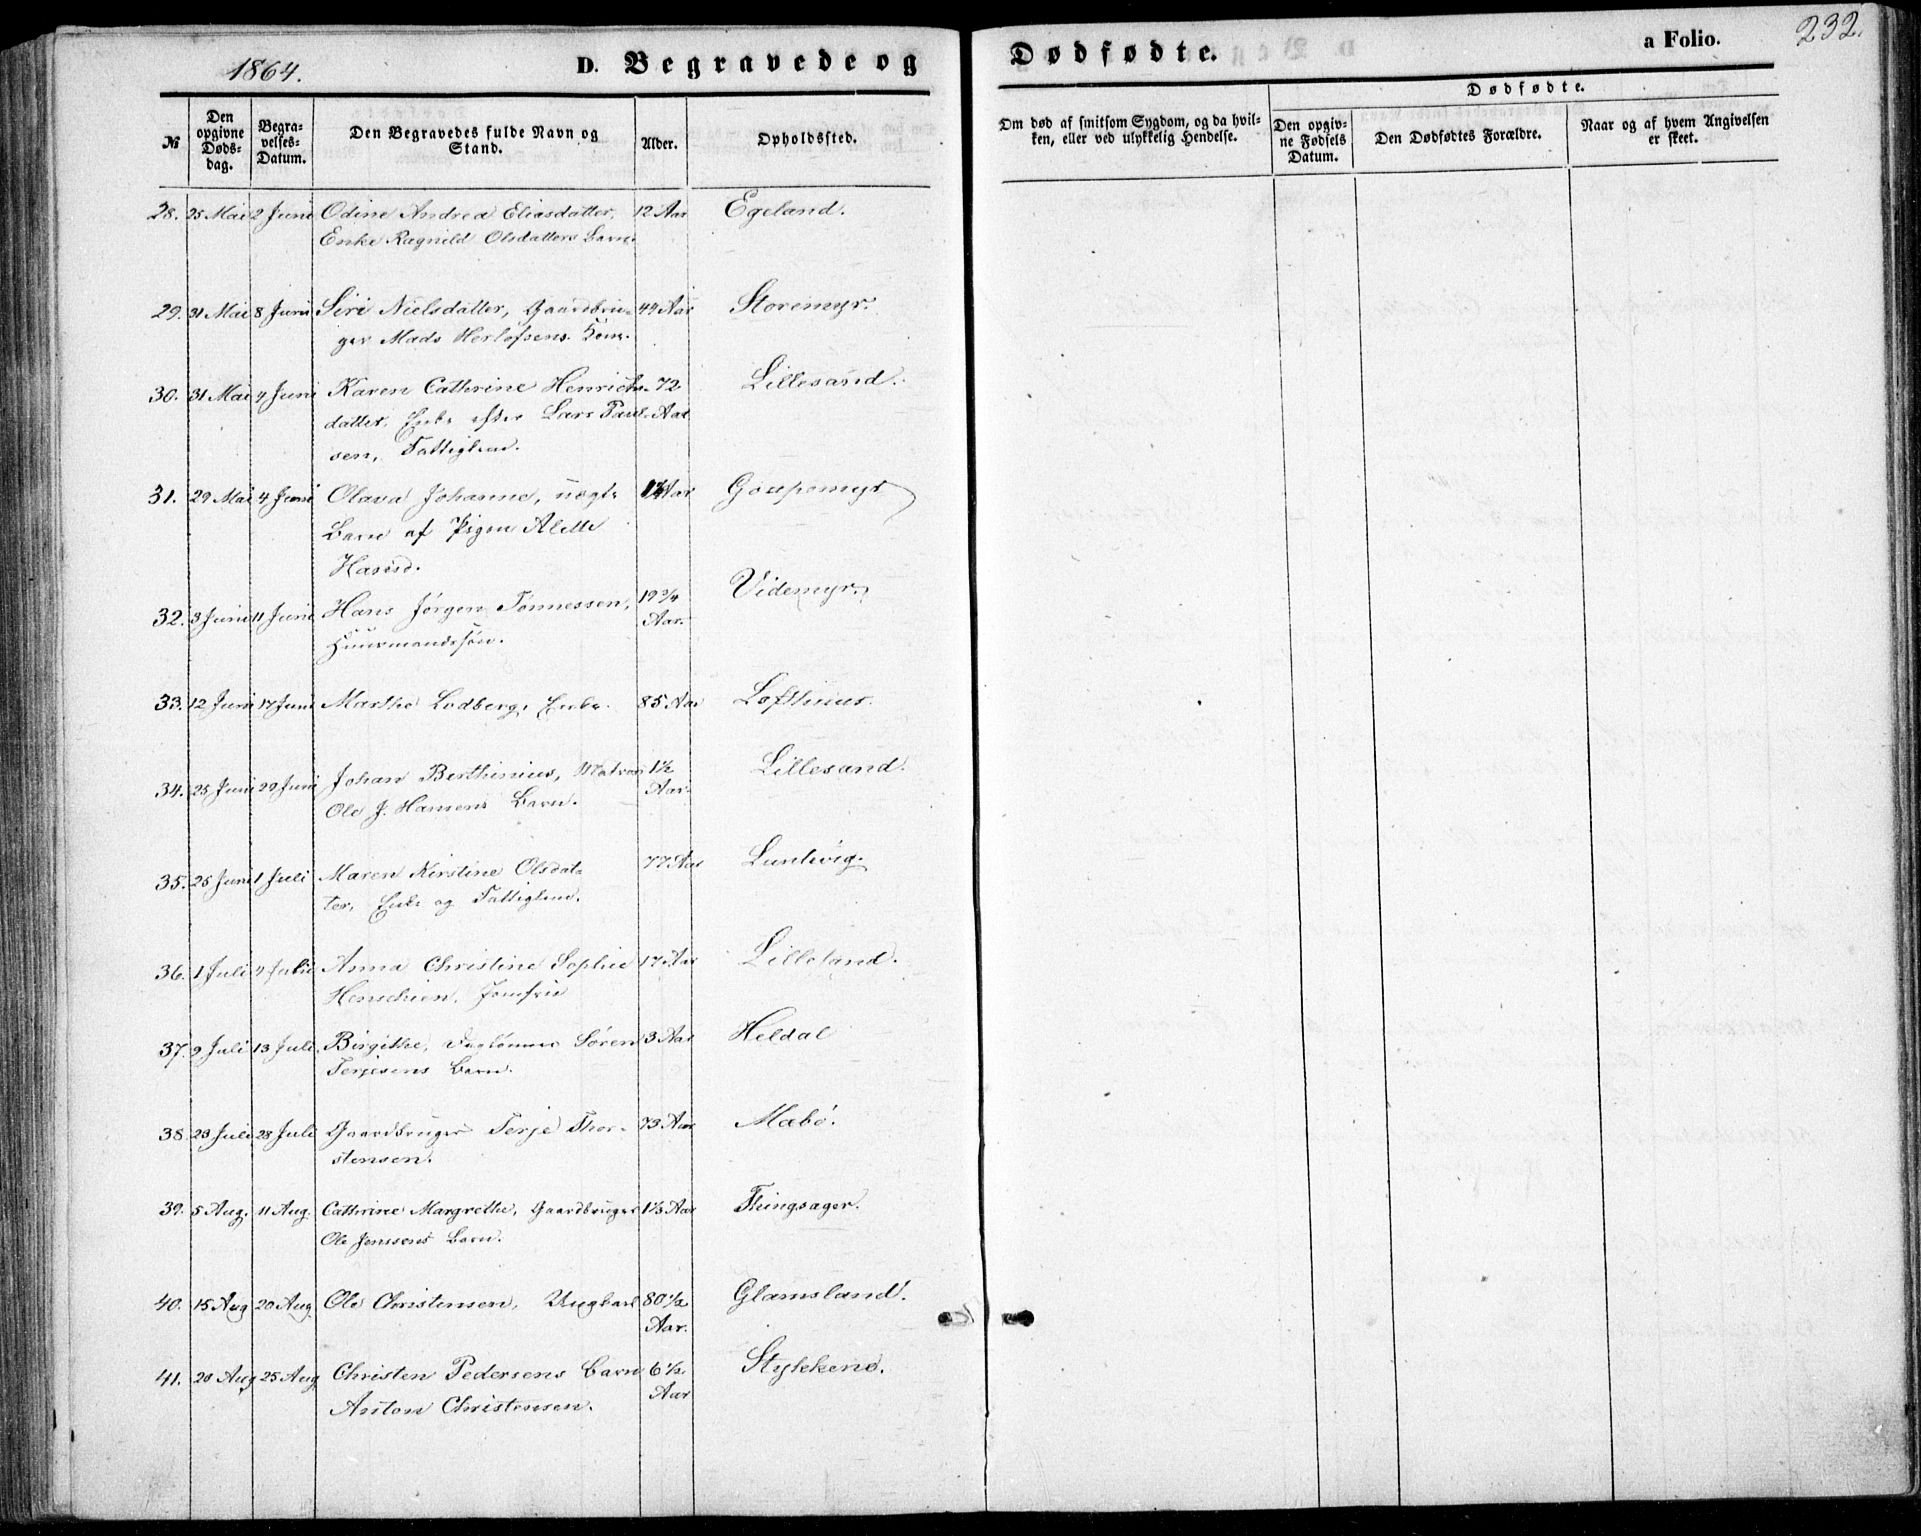 1864.
D. Begravede og
Dødfødte.
a Folio.
232.
№
Den opgivne Dødsdag.
Begravelses-Datum.
Den Begravedes fulde Navn og Stand.
Alder.
Opholdssted.
Om død af smitsom Sygdom, og da hvilken, eller ved ulykkelig Hendelse.
Dødfødte.
Den opgivne Fødsels Datum.
Den Dødfødtes Forældre.
Naar og af hvem Angivelsen er skeet.
28. 25 Mai 2 Juni Odine Andrea Eliasdatter, 12 Aar Egeland.
Enke Ragnild Olsdatters Barn.
29. 31 Mai 8 Juni Siri Nielsdatter, Gaardbru- 44 Aar Storemyr.
ger Mads Herlofsens Kone.
30. 31 Mai 4 Juni Karen Cathrine Henrichs- 72 Lillesand.
datter, Enke efter Lars Paul- Aar.
sen, Fattiglem.
31. 29 Mai 4 Juni Olava Johanne, uægte Aar
Barn af Pigen Alette
Hansd.
32. 3 Juni 11 Juni Hans Jørgen Tønnessen, 19 3/4 Videmyr.
Huusmandssøn. Aar.
33. 12 Juni 17 Juni Marthe Lodberg, Enke. 85 Aar Lofthuus.
34. 25 Juni 29 Juni Johan Berthinius, Matros 1 1/2 Lillesand.
Ole J. Hansens Barn. Aar.
35. 25 Juni 1 Juli Maren Kirstine Olsdat- 77 Aar Luntevig.
ter, Enke og Fattiglem.
36. 1 Juli 4 Juli Anna Christine Sophie 17 Aar Lillesand.
Henschien, Jomfru
37. 9 Juli 13 Juli Birgithe, Daglønner Søren 3 Aar Heldal
Terjesens Barn.
38. 23 Juli 28 Juli Gaardbruger Terje Thor- 73 Aar Mæbø.
stensen.
39. 5 Aug. 11 Aug. Cathrine Margrethe, Gaardbruger 1 1/3 Aar Thingsager.
Ole Jenssens Barn.
40. 15 Aug 20 Aug. Ole Christensen, Ungkarl 80 1/2 Glamsland.
Aar.
41. 20 Aug 25 Aug Christen Pedersens Barn 6 1/2 Stykkenø.
Anton Christensen. Aar